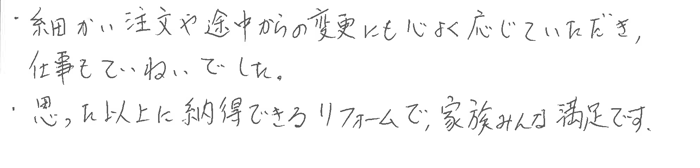 ・細かい注文や途中からの変更にも心よく応じていただき,
仕事もていねいでした。
・思った以上に納得できるリフォームで,家族みんな満足です.